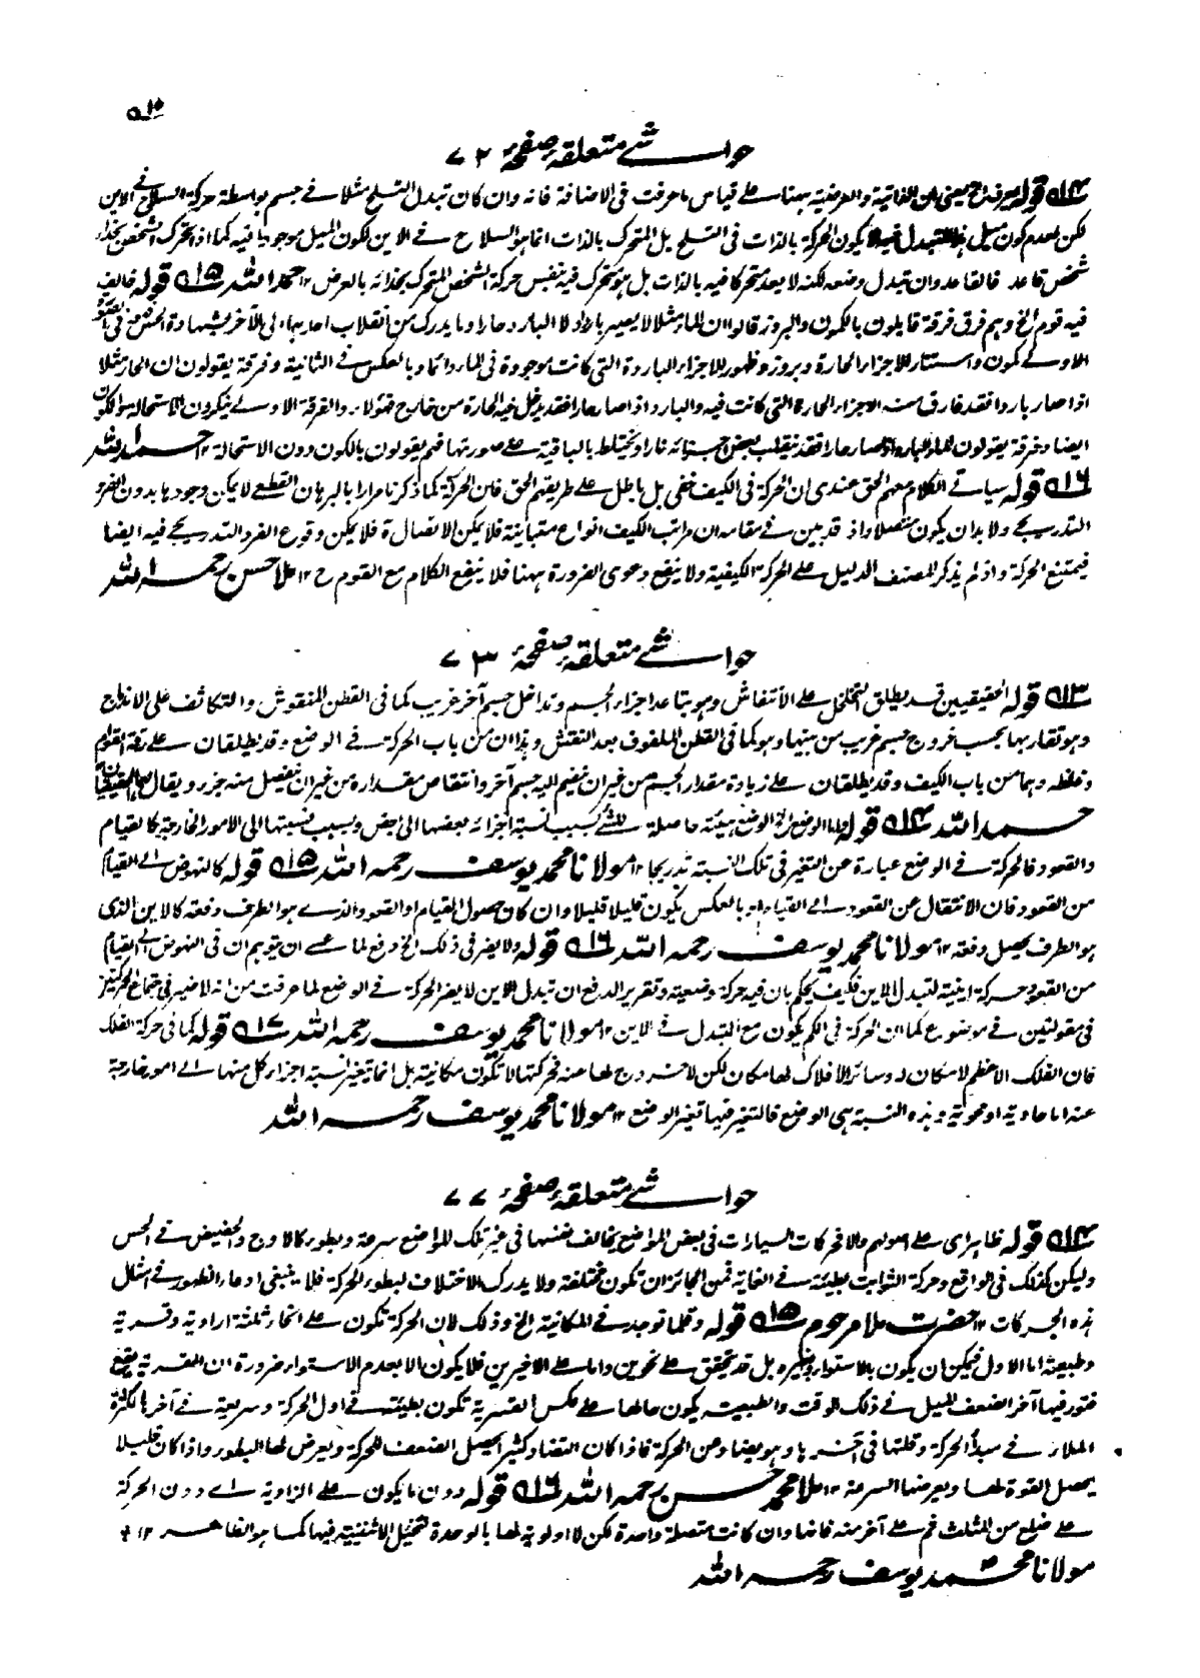 حواشے متعلقہ صفحۂ ۷۲
قولہ يعنى ان الذاتية والعرضية ههنا علے قياس ما عرفت فى الاضافة فانه وان كان تبدل التسلح مثلا فے جسم بواسطة حركة السلاح فے الاين
لكن لعدم كون ميل يكون الحركة بالذات فى التسلح بل المتحرك بالذات انما هو السلاح فے الاين لكون الميل موجودا فيه كما اذا تحرك الشخص بحذاء
شخص قاعد فالقاعد وان تبدل وضعه لكنه لا يعد متحركا فيه بالذات بل هو متحرك فيه بنفس حركة الشخص المتحرك بحذائه بالعرض ۱۲ حمد اللہ ۵۱۵ قولہ خالف
فيه قوم الخ وهم فرق فرقة قايلون بالكمون والبروز قالوا ان الماء مثلا لا يصير باردا ولا البارد حارا وما يدرك من انقلاب احدهما الى الآخر بشهادة الحس فهو فى
الاولے كمون واستتار للاجزاء الحارة وبروز وظهور للاجزاء الباردة التى كانت موجودة فى الماء دائما وبالعكس فے الثانية وفرقة يقولون ان الحار مثلا
اذا صار باردا فقد فارق منه الاجزاء الحارة التى كانت فيه والبارد اذا صار حارا فقد يدخل فيه الحارة من خارج فهؤلاء والفرقة الاولے ينكرون الاستحالة والكون
ايضا وفرقة يقولون الماء البارد اذا صار حارا فقد ينقلب بعض اجزائه نارا ويختلط بالباقية علے صورتها فهم يقولون بالكون دون الاستحالة ۱۲ حمد اللہ
۵۱۶ قولہ سياتے الكلام معهم الحق عندى ان الحركة فى الكيف خفى بل باطل علے طريقهم الحق فان الحركة كما ذكرنا مرارا بالبرهان القطعے لا يمكن وجودها بدون الفرد
التدريجے ولا بد ان يكون متصلا واذ قد بين فے مقامه ان مراتب الكيف انواع متباينة فلا يمكن الاتصال فلا يمكن وقوع الفرد التدريجے فيه ايضا
فيمتنع الحركة واذ لم يذكر المصنف الدليل علے الحركة الكيفية ولا ينفع دعوى الضرورة ههنا فلا ينفع الكلام مع القوم ح ۱۲ ملا حسن رحمہ اللہ
حواشے متعلقہ صفحۂ ۷۳
۵۱۳ قولہ الحقيقيين قد يطلق التخلخل علے الانتفاش وهو تباعد اجزاء الجسم وتداخل جسم آخر غريب كما فى القطن المنفوش والتكاثف على الاندماج
وهو تقاربها بحسب خروج جسم غريب من بينها وهو كما فى القطن الملفوف بعد النفش وهذان من باب الحركة فے الوضع وقد يطلقان علے رقة القوام
وغلظه وهما من باب الكيف وقد يطلقان علے زيادة مقدار الجسم من غير ان ينضم اليه جسم آخر وانتقاص مقداره من غير ان ينفصل منه جزء ويقال لهما الحقيقيان
حمد اللہ ۵۱۴ قولہ واما الوضع الخ الوضع هيئة حاصلة للشے بسبب نسبة اجزائه بعضها الى بعض وبسبب نسبتها الى الامور الخارجية كالقيام
والقعود فالحركة فے الوضع عبارة عن التغير فى تلك النسبة تدريجا ۱۲ مولانا محمد يوسف رحمہ اللہ ۵۱۵ قولہ كالنهوض الے القيام
من القعود فان الانتقال عن القعود الے القيام او بالعكس يكون قليلا قليلا وان كان حصول القيام او القعود الذے هو الطرف دفعة كالاين الذى
هو الطرف يحصل دفعة ۱۲ مولانا محمد يوسف رحمہ اللہ ۵۱۶ قولہ ولا يضر فى ذلك الخ دفع لما عسے ان يتوهم ان فى النهوض الے القيام
من القعود حركة اينية لتبدل الاين فكيف يحكم بان فيه حركة وضعية وتقرير الدفع ان تبدل الاين لا يضر الحركة فے الوضع لما عرفت من انه لا ضير فى اجتماع الحركتين
فى مقولتين فے موضوع كما ان الحركة فى الكم يكون مع التبدل فے الاين ۱۲ مولانا محمد يوسف رحمہ اللہ ۵۱۷ قولہ كما فى حركة الفلك
فان الفلك الاعظم لا مكان له وسائر الافلاك لها مكان لكن لا خروج لها عنه فحركتها لا تكون مكانية بل انما تغير نسبة اجزاء كل منها الے امور خارجة
عنه اما حاوية او محوية وهذه النسبة هى الوضع فالتغير فيها تغير الوضع ۱۲ مولانا محمد يوسف رحمہ اللہ
حواشے متعلقہ صفحۂ ۷۷
۵۱۴ قولہ علے اصولهم والا فحركات السيارات فى بعض المواضع يخالف نفسها فى غير تلك المواضع سرعة وبطوء كالاوج والحضيض فے الحس
وليكن كذلك فى الواقع وحركة الثوابت بطيئة فے الغاية فمن الجائز ان تكون مختلفة ولا يدرك الاختلاف لبطوء الحركة فلا ينبغى ادعاء الظهور فے امثال
هذه الحركات ۱۲ حضرت ملا مرحوم ۵۱۵ قولہ وقلما توجد فے المكانية الخ وذلك لان الحركة تكون علے انحاء ثلثة ارادية وقسرية
وطبيعية اما الاول فيمكن ان يكون بالاستواء وغيره بل قد تحقق علے نحوين واما علے الاخيرين فلا يكون الا بعدم الاستواء ضرورة ان القسرية يقع
فتور فيها آخرا لضعف الميل فے ذلك الوقت والطبيعية يكون حالها علے عكس القسرية تكون بطيئة فے اول الحركة وسريعة فے آخرها لكثرة
الملاء فے مبدأ الحركة وقلتها فى آخرها وهو يعاوق عن الحركة فاذا كان كثيرا يحصل الضعف للحركة ويعرض لها البطوء واذا كان قليلا
يحصل القوة لها ويعرضها السرعة ۱۲ ملا محمد حسن رحمہ اللہ ۵۱۶ قولہ دون ما يكون علے الزاوية اے دون الحركة
علے ضلع من المثلث ثم علے آخر منه فانها وان كانت متصلة واحدة لكن لا اولوية لها بالوحدة لتخيل الاثنينية فيها كما هو الظاهر ۱۲
مولانا محمد يوسف رحمہ اللہ